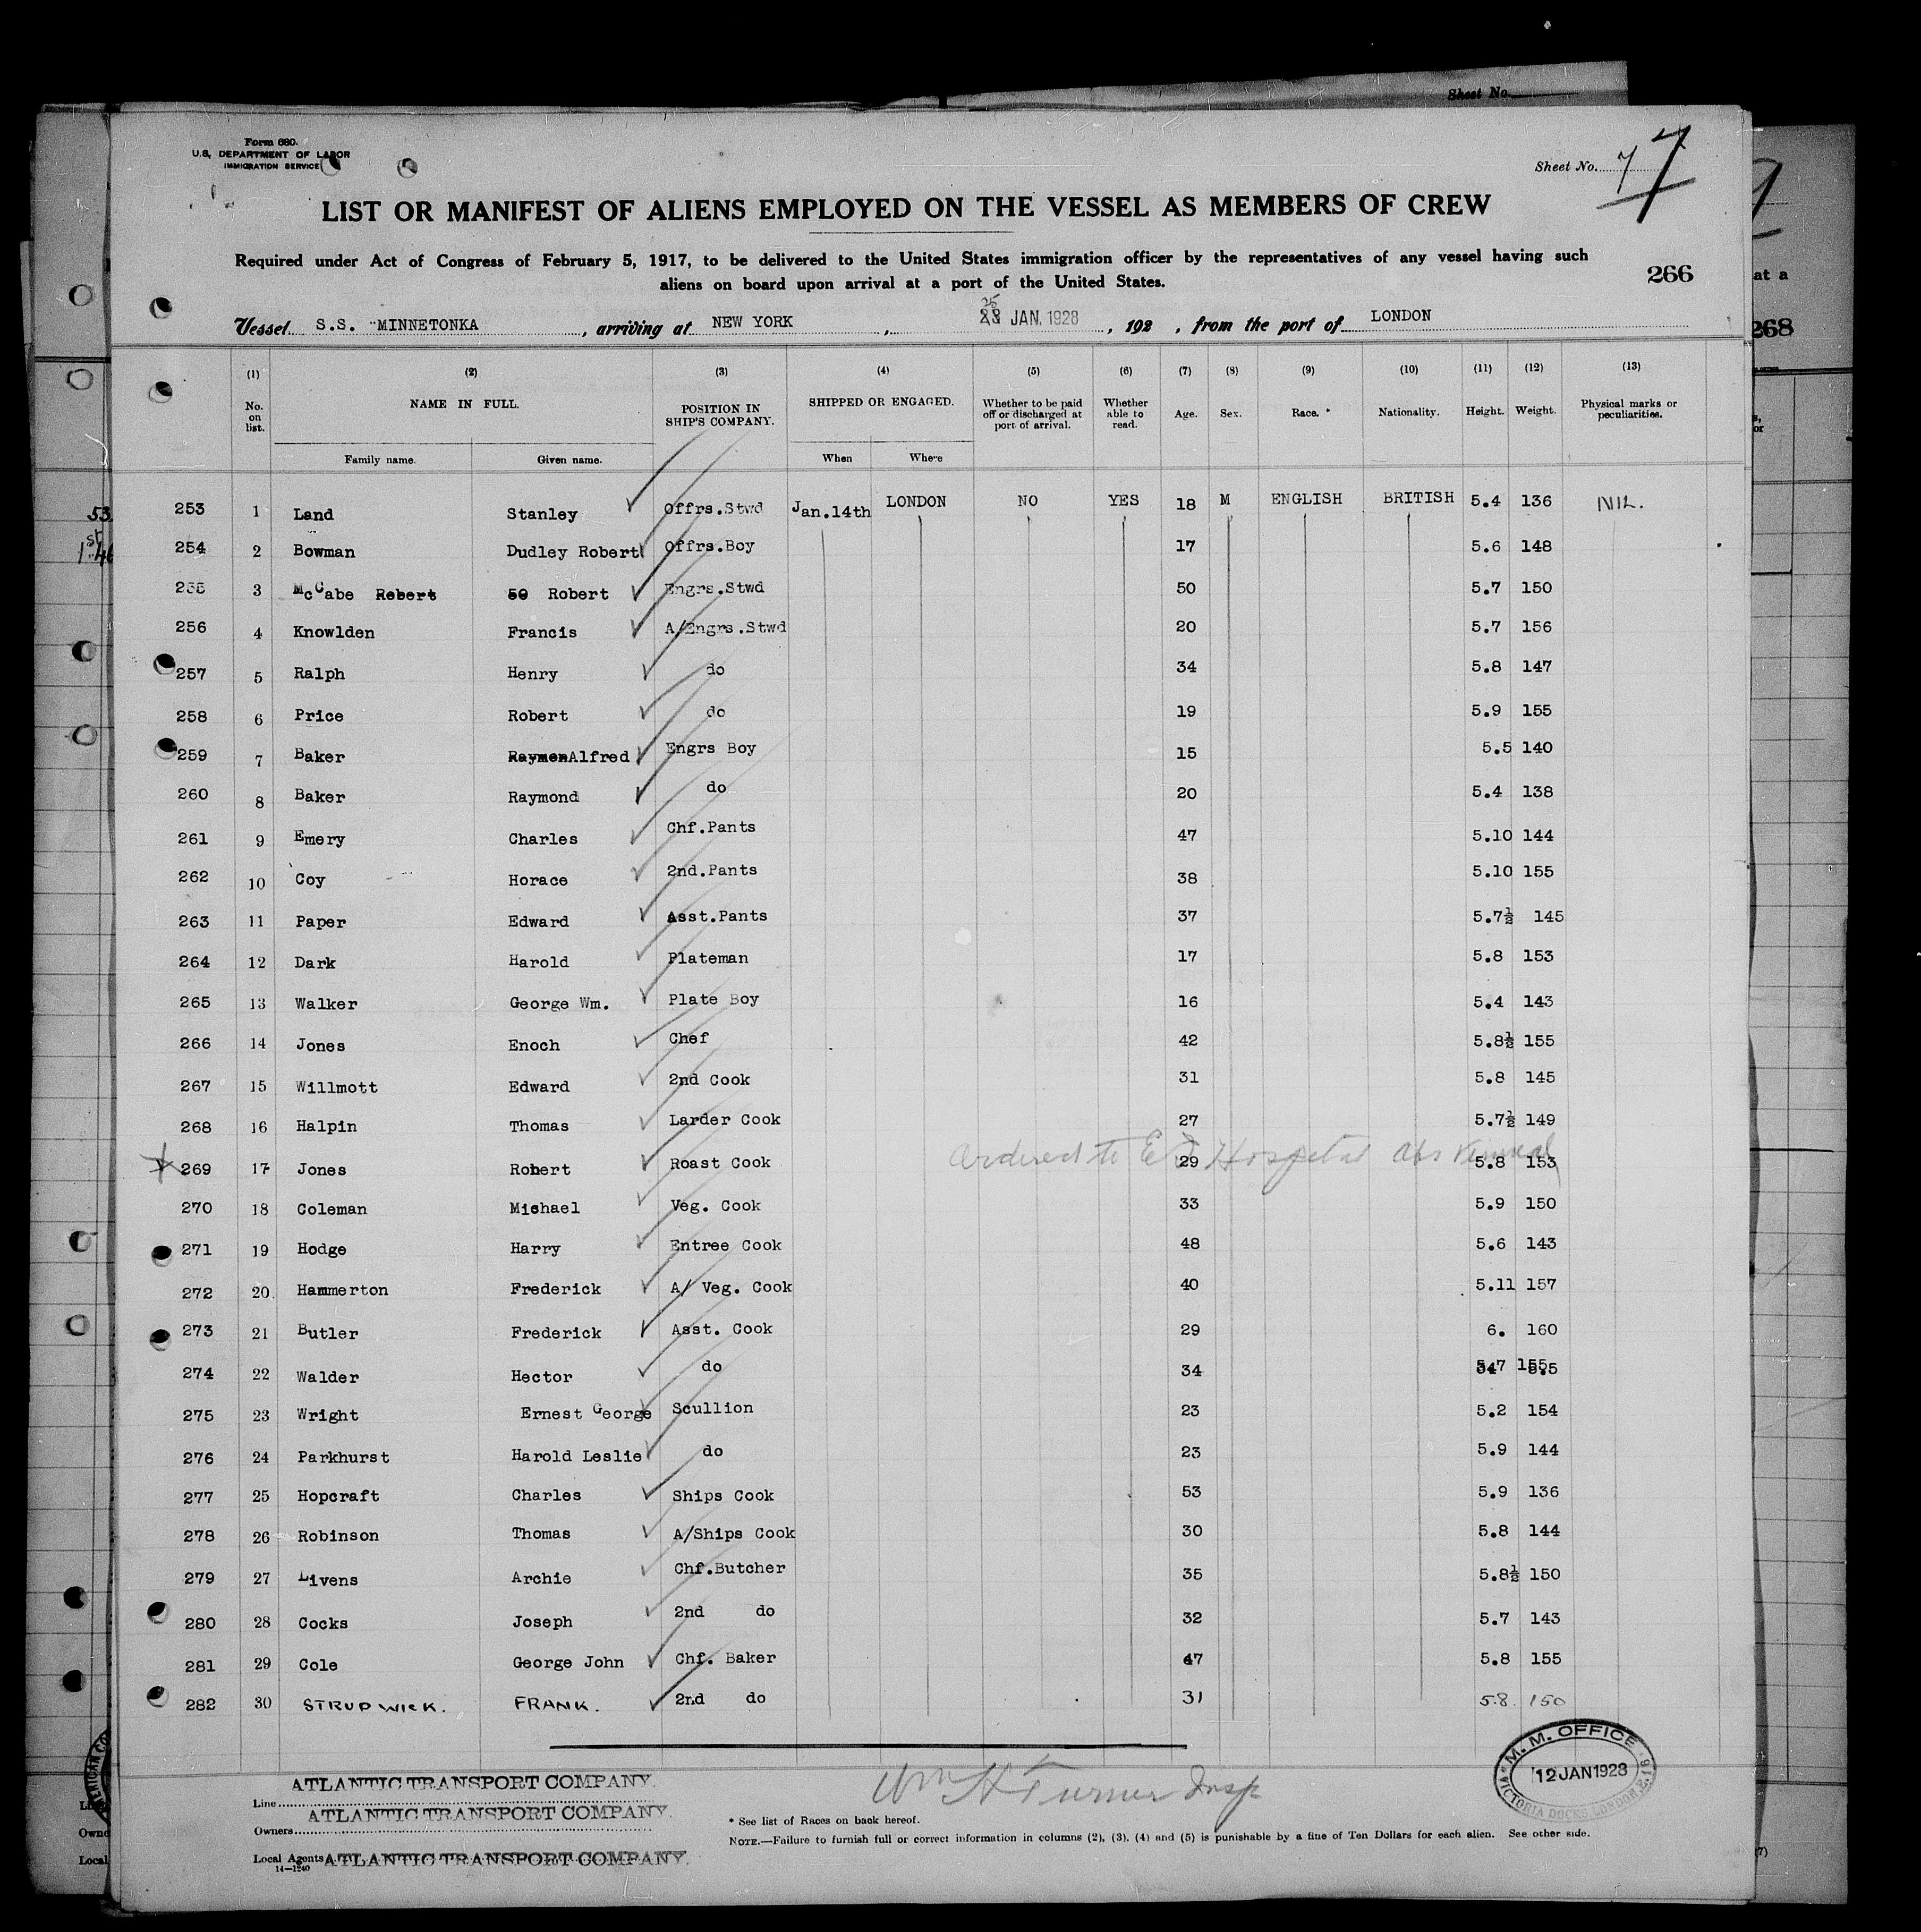 Sheet No.
Form 680.
U.S. DEPARTMENT OF LABOR
IMMIGRATION SERVICE
Sheet No. 7 7
LIST OR MANIFEST OF ALIENS EMPLOYED ON THE VESSEL AS MEMBERS OF CREW
Required under Act of Congress of February 5, 1917, to be delivered to the United States immigration officer by the representatives of any vessel having such
aliens on board upon arrival at a port of the United States.
266
at a
268
25
Vessel S.S. "MINNETONKA , arriving at NEW YORK , 23 JAN. 1928 , 192 , from the port of LONDON
(1) (2) (3) (4) (5) (6) (7) (8) (9) (10) (11) (12) (13)
No. on list. NAME IN FULL. POSITION IN SHIP'S COMPANY. SHIPPED OR ENGAGED. Whether to be paid off or discharged at port of arrival. Whether able to read. Age. Sex. Race. * Nationality. Height. Weight. Physical marks or peculiarities.
Family name. Given name. When Where
253 1 Land Stanley Offrs.Stwd Jan.14th LONDON NO YES 18 M ENGLISH BRITISH 5.4 136 NIL.
254 2 Bowman Dudley Robert Offrs.Boy 17 5.6 148
255 3 McCabe Robert 50 Robert Engrs.Stwd 50 5.7 150
256 4 Knowlden Francis A/Engrs.Stwd 20 5.7 156
257 5 Ralph Henry do 34 5.8 147
258 6 Price Robert do 19 5.9 155
259 7 Baker RaymonAlfred Engrs Boy 15 5.5 140
260 8 Baker Raymond do 20 5.4 138
261 9 Emery Charles Chf.Pants 47 5.10 144
262 10 Coy Horace 2nd.Pants 38 5.10 155
263 11 Paper Edward Asst.Pants 37 5.7½ 145
264 12 Dark Harold Plateman 17 5.8 153
265 13 Walker George Wm. Plate Boy 16 5.4 143
266 14 Jones Enoch Chef 42 5.8½ 155
267 15 Willmott Edward 2nd Cook 31 5.8 145
268 16 Halpin Thomas Larder Cook 27 5.7½ 149
ordered to E I Hospital
269 17 Jones Robert Roast Cook 29 5.8 153
270 18 Coleman Michael Veg. Cook 33 5.9 150
271 19 Hodge Harry Entree Cook 48 5.6 143
272 20. Hammerton Frederick A/ Veg. Cook 40 5.11 157
273 21 Butler Frederick Asst. Cook 29 6. 160
274 22 Walder Hector do 34 5.7 155
275 23 Wright Ernest George Scullion 23 5.2 154
276 24 Parkhurst Harold Leslie do 23 5.9 144
277 25 Hopcraft Charles Ships Cook 53 5.9 136
278 26 Robinson Thomas A/Ships Cook 30 5.8 144
279 27 Livens Archie Chf.Butcher 35 5.8½ 150
280 28 Cocks Joseph 2nd do 32 5.7 143
281 29 Cole George John Chf. Baker 47 5.8 155
282 30 STRUDWICK. FRANK. 2nd do 31 5.8 150
Line ATLANTIC TRANSPORT COMPANY.
Owners ATLANTIC TRANSPORT COMPANY.
Local Agents ATLANTIC TRANSPORT COMPANY.
14—1240
Wm H Turner Insp
* See list of Races on back hereof.
NOTE.—Failure to furnish full or correct information in columns (2), (3), (4) and (5) is punishable by a fine of Ten Dollars for each alien. See other side.
M. M. OFFICE
12 JAN 1928
VICTORIA DOCKS, LONDON, E.16
Owne
Local